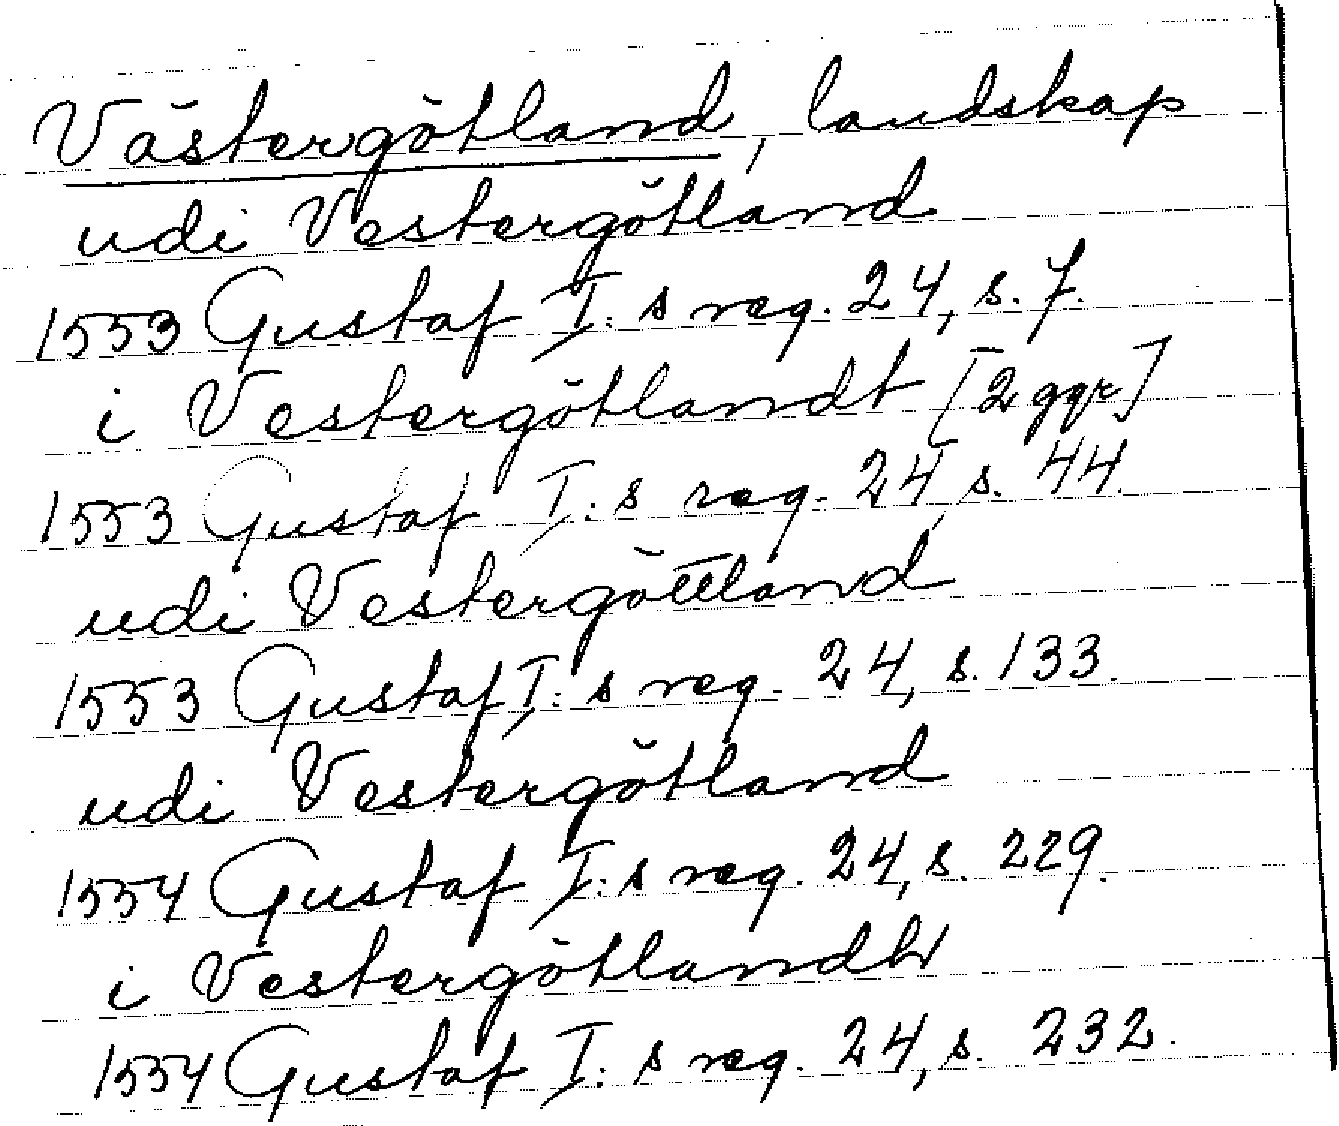 Västergötland, landskap
udi Vestergötland
1553 Gustaf I:s reg. 24, s. 7.
i Vestergötlandt [2 ggr]
1553 Gustaf I:s reg. 24, s. 44.
udi Vestergöttland
1553 Gustaf I:s reg. 24, s. 133.
udi Vestergötland
1554 Gustaf I:s reg. 24, s. 229.
i Vestergötlandh
1554 Gustaf I:s reg. 24, s. 232.